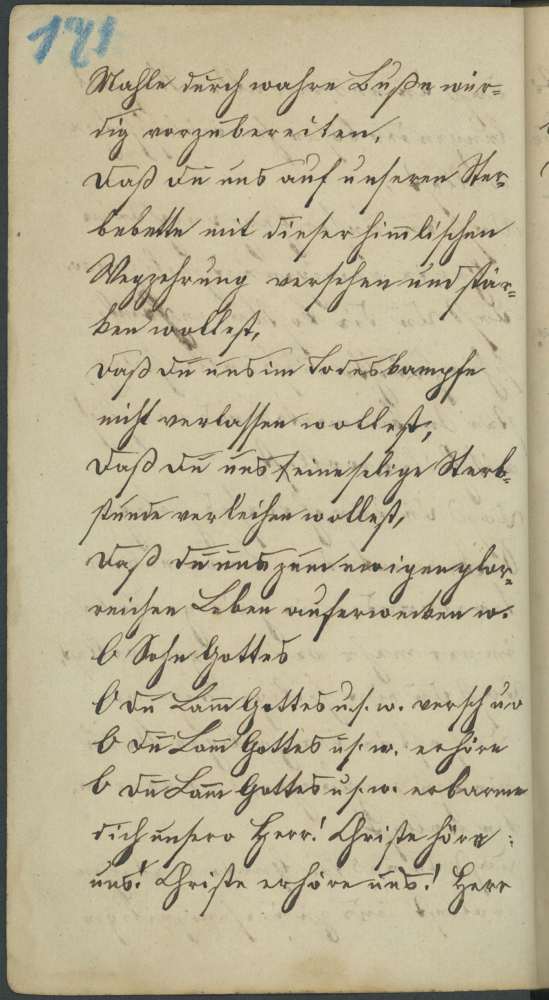 171
Mahle durch wahre Buße wür-
dig vorzubereiten,
Daß du uns auf unseren Ster-
bebette mit dieser himlischen
Wegzehrung versehen und stär-
ken wollest,
Daß du uns im Todeskampfe
nicht verlassen wollest,
Daß du uns eine selige Sterb-
stunde verleihen wollest,
Daß du uns zum ewigen glor-
reichen Leben auferwecken w.
O Sohn Gottes
O du Lam̄ Gottes u.s.w. versch uns
O du Lam̄ Gottes u.s.w. erhöre
O du Lam̄ Gottes u.s.w. erbarme
dich unser o Herr! Christe höre
uns! Christe erhöre uns! Herr